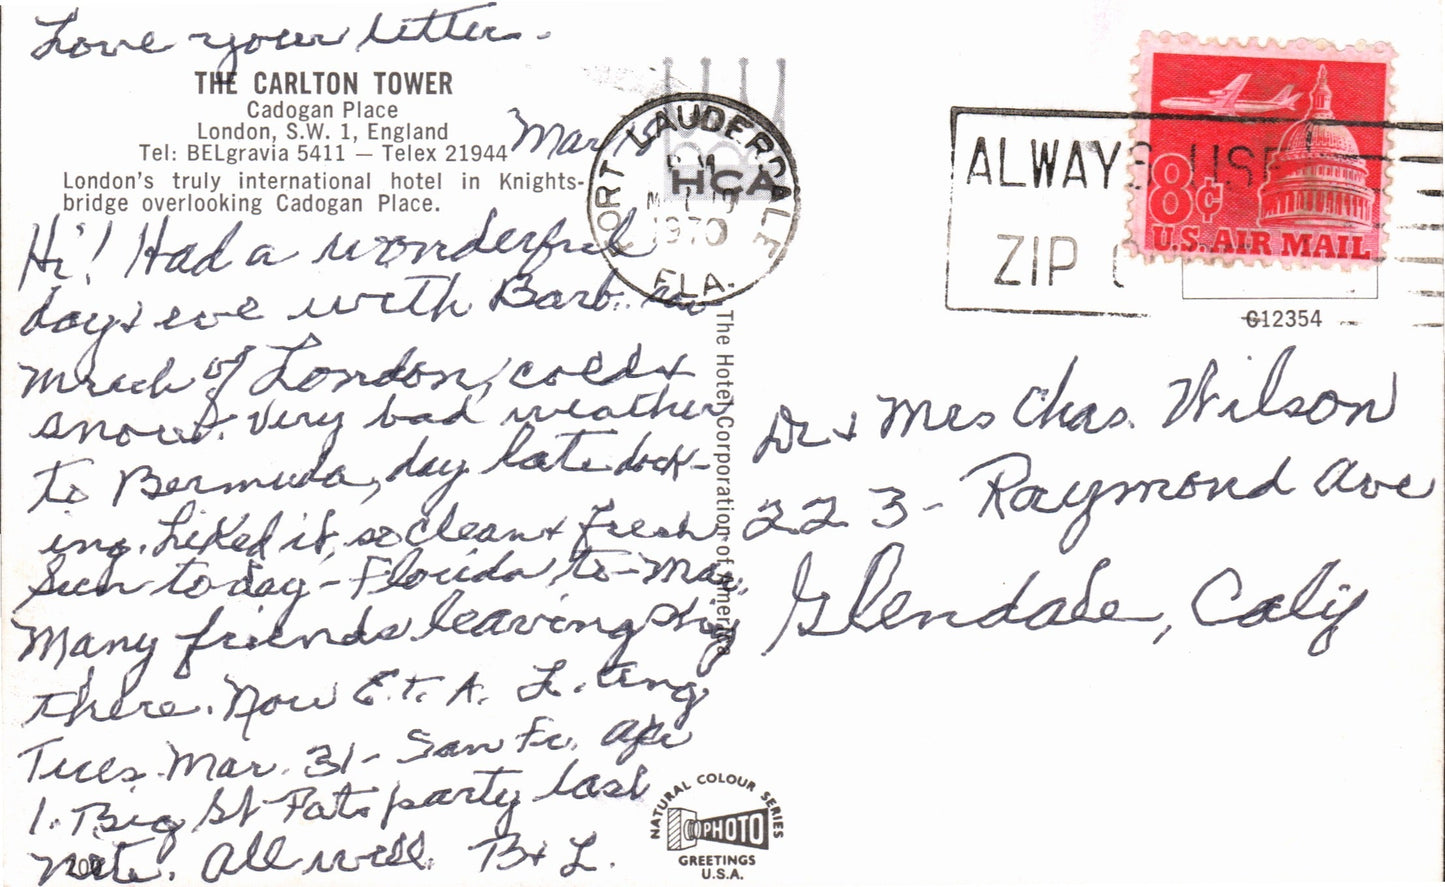 Love your letter.
THE CARLTON TOWER
Cadogan Place
London, S.W. 1, England
Tel: BELgravia 5411 — Telex 21944
London's truly international hotel in Knights-
bridge overlooking Cadogan Place.
Mar
Hi! Had a wonderful
day & eve with Barb.
much of London, cold &
snow. Very bad weather
to Bermuda, day late dock-
ing. Liked it, so clean & fresh
Sun today - Florida to-
Many friends leaving ship
there. Now E.T.A. L.
Tues. Mar. 31 - San Fr. Apr
1. Big St Pats party last
nite. All well. B & L.
200
The Hotel Corporation of America
HCA
FORT LAUDERDALE
FLA.
1970
ALWAYS USE
ZIP
8¢
U.S. AIR MAIL
G12354
Dr & Mrs Chas. Wilson
223 - Raymond Ave
Glendale, Calif
NATURAL COLOUR SERIES
PHOTO
GREETINGS
U.S.A.